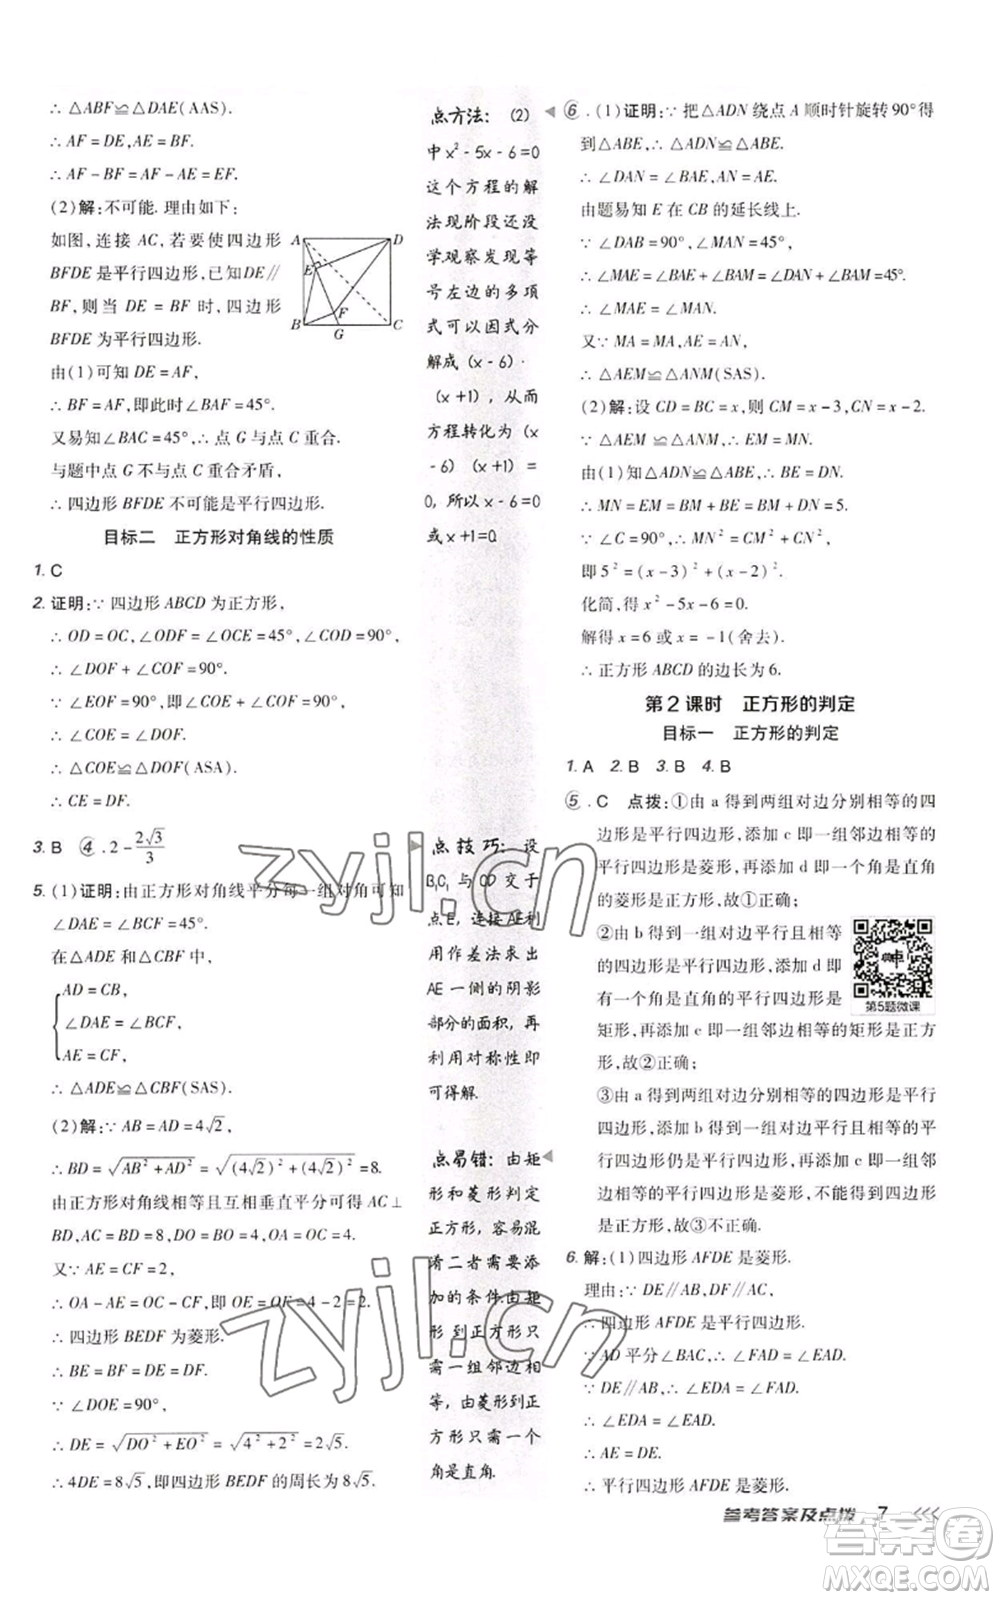 ∴ △ABF≌△DAE(AAS).
∴ AF = DE, AE = BF.
∴ AF − BF = AF − AE = EF.
(2)解:不可能. 理由如下:
如图, 连接 AC, 若要使四边形
BFDE 是平行四边形, 已知 DE∥
BF, 则当 DE = BF 时, 四边形
BFDE 为平行四边形.
由(1)可知 DE = AF,
∴ BF = AF, 即此时∠BAF = 45°.
又易知∠BAC = 45°, ∴ 点 G 与点 C 重合.
与题中点 G 不与点 C 重合矛盾,
∴ 四边形 BFDE 不可能是平行四边形.
A
D
E
F
B
G
C
目标二 正方形对角线的性质
1. C
2. 证明:∵ 四边形 ABCD 为正方形,
∴ OD = OC, ∠ODF = ∠OCE = 45°, ∠COD = 90°,
∴ ∠DOF + ∠COF = 90°.
∵ ∠EOF = 90°, ∴ ∠COE + ∠COF = 90°,
∴ ∠COE = ∠DOF.
∴ △COE≌△DOF(ASA).
∴ CE = DF.
3. B ④. 2 − 2√3/3
5. (1)证明:由正方形对角线平分每一组对角可知
∠DAE = ∠BCF = 45°.
在△ADE 和△CBF 中,
AD = CB,
∠DAE = ∠BCF,
AE = CF,
∴ △ADE≌△CBF(SAS).
(2)解:∵ AB = AD = 4√2,
∴ BD = √(AB² + AD²) = √((4√2)² + (4√2)²) = 8.
由正方形对角线相等且互相垂直平分可得 AC⊥
BD, AC = BD = 8, OD = OB = 4, OA = OC = 4.
又∵ AE = CF = 2,
∴ OA − AE = OC − CF, 即 OE = OF = 4 − 2 = 2,
∴ 四边形 BEDF 为菱形.
∴ BE = BF = DE = DF.
∵ ∠DOE = 90°,
∴ DE = √(DO² + EO²) = √(4² + 2²) = 2√5.
∴ 4DE = 8√5, 即四边形 BEDF 的周长为 8√5.
点方法: (2)
中 x² − 5x − 6 = 0
这个方程的解
法现阶段还没
学观察发现等
号左边的多项
式可以因式分
解成 (x − 6)·
(x + 1), 从而
方程转化为 (x
− 6) (x + 1) =
0, 所以 x − 6 = 0
或 x + 1 = 0.
点技巧: 设
B₁C₁ 与 CD 交于
点 E, 连接 AE 利
用作差法求出
AE 一侧的阴影
部分的面积, 再
利用对称性即
可得解.
点易错: 由矩
形和菱形判定
正方形, 容易混
淆二者需要添
加的条件. 由矩
形到正方形只
需一组邻边相
等, 由菱形到正
方形只需一个
角是直角.
⑥. (1)证明:∵ 把△ADN 绕点 A 顺时针旋转 90°得
到△ABE, ∴ △ADN≌△ABE.
∴ ∠DAN = ∠BAE, AN = AE.
由题易知 E 在 CB 的延长线上.
∵ ∠DAB = 90°, ∠MAN = 45°,
∴ ∠MAE = ∠BAE + ∠BAM = ∠DAN + ∠BAM = 45°.
∴ ∠MAE = ∠MAN.
又∵ MA = MA, AE = AN,
∴ △AEM≌△ANM(SAS).
(2)解:设 CD = BC = x, 则 CM = x − 3, CN = x − 2.
∵ △AEM≌△ANM, ∴ EM = MN.
由(1)知△ADN≌△ABE, ∴ BE = DN.
∴ MN = EM = BE + BM = BM + DN = 5.
∵ ∠C = 90°, ∴ MN² = CM² + CN²,
即 5² = (x − 3)² + (x − 2)².
化简, 得 x² − 5x − 6 = 0.
解得 x = 6 或 x = −1(舍去).
∴ 正方形 ABCD 的边长为 6.
第2课时 正方形的判定
目标一 正方形的判定
1. A 2. B 3. B 4. B
⑤. C 点拨:①由 a 得到两组对边分别相等的四
边形是平行四边形, 添加 c 即一组邻边相等的
平行四边形是菱形, 再添加 d 即一个角是直角
的菱形是正方形, 故①正确;
②由 b 得到一组对边平行且相等
的四边形是平行四边形, 添加 d 即
有一个角是直角的平行四边形是
矩形, 再添加 c 即一组邻边相等的矩形是正方
形, 故②正确;
③由 a 得到两组对边分别相等的四边形是平行
四边形, 添加 b 即一组对边平行且相等的平行
四边形仍是平行四边形, 再添加 c 即一组邻边
相等的平行四边形是菱形, 不能得到四边形是
正方形, 故③不正确.
第5题微课
6. 解:(1)四边形 AFDE 是菱形.
理由:∵ DE∥AB, DF∥AC,
∴ 四边形 AFDE 是平行四边形.
∵ AD 平分∠BAC, ∴ ∠FAD = ∠EAD.
∵ DE∥AB, ∴ ∠EDA = ∠FAD.
∴ ∠EDA = ∠EAD.
∴ AE = DE.
∴ 平行四边形 AFDE 是菱形.
参考答案及点拨 7
zyjl.cn
zyjl.cn
答案圈
MXQE.COM